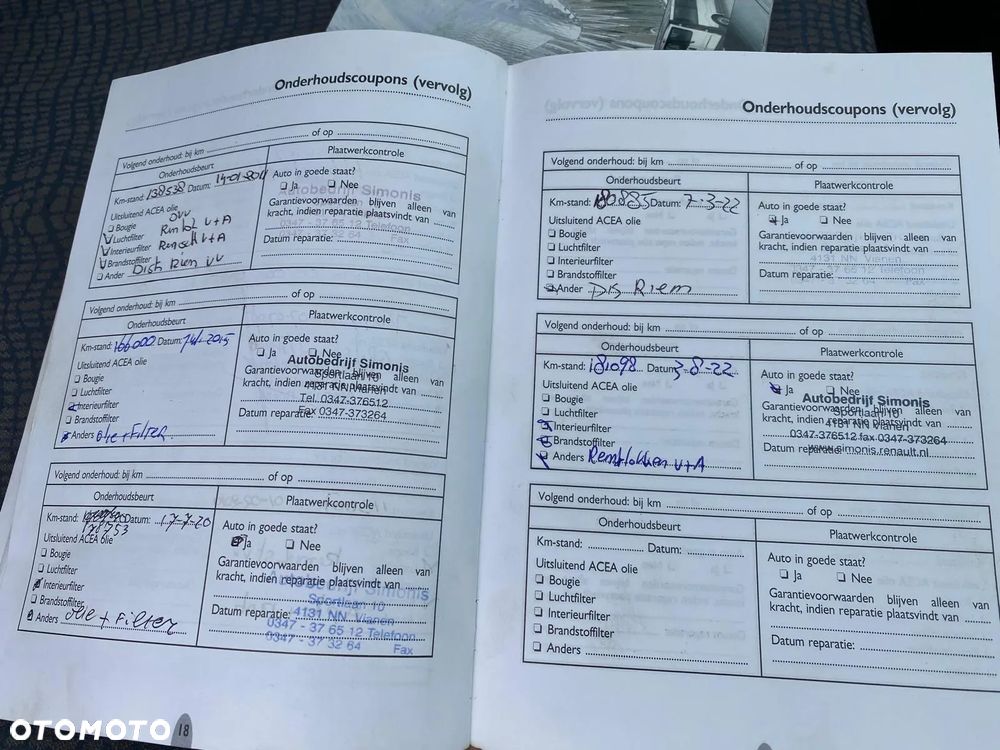 Onderhoudscoupons (vervolg)
Volgend onderhoud: bij km ... of op ...
Onderhoudsbeurt
Plaatwerkcontrole
Km-stand: 138538 Datum: 14-01-2011
Auto in goede staat?
❑ Ja ❑ Nee
Autobedrijf Simonis
Uitsluitend ACEA olie
❑ Bougie
Luchtfilter
Interieurfilter
Brandstoffilter
❑ Ander Dist Riem
V+A
V+A
Garantievoorwaarden blijven alleen van
kracht, indien reparatie plaatsvindt van
0347 - 37 65 12 Telefoon
0347 - 37 32 64 Fax
Datum reparatie:
Volgend onderhoud: bij km ... of op ...
Onderhoudsbeurt
Plaatwerkcontrole
Km-stand: 166000 Datum: 2015
Auto in goede staat?
❑ Ja ❑ Nee
Uitsluitend ACEA olie
❑ Bougie
❑ Luchtfilter
Interieurfilter
❑ Brandstoffilter
Anders Olie + Filter
Garantievoorwaarden blijven alleen van
kracht, indien reparatie plaatsvindt van
Datum reparatie:
Autobedrijf Simonis
Sportlaan 10
4131 NN Vianen
Tel. 0347-376512
Fax 0347-373264
Volgend onderhoud: bij km ... of op ...
Onderhoudsbeurt
Plaatwerkcontrole
Km-stand: 178753 Datum: 17-7-20
Auto in goede staat?
Ja ❑ Nee
Uitsluitend ACEA olie
❑ Bougie
❑ Luchtfilter
Interieurfilter
❑ Brandstoffilter
Anders olie + Filter
Garantievoorwaarden blijven alleen van
kracht, indien reparatie plaatsvindt van
Datum reparatie:
Autobedrijf Simonis
Sportlaan 10
4131 NN. Vianen
0347 - 37 65 12 Telefoon
0347 - 37 32 64 Fax
18
Onderhoudscoupons (vervolg)
Volgend onderhoud: bij km ... of op ...
Onderhoudsbeurt
Plaatwerkcontrole
Km-stand: 180.885 Datum: 7-3-22
Auto in goede staat?
Ja ❑ Nee
Uitsluitend ACEA olie
❑ Bougie
❑ Luchtfilter
❑ Interieurfilter
❑ Brandstoffilter
Ander Dis Riem
Garantievoorwaarden blijven alleen van
kracht, indien reparatie plaatsvindt van
4131 NN. Vianen
0347 - 37 65 12 Telefoon
0347 - 37 32 64 Fax
Datum reparatie:
Volgend onderhoud: bij km ... of op ...
Onderhoudsbeurt
Plaatwerkcontrole
Km-stand: 181098 Datum: 3-8-22
Auto in goede staat?
Ja ❑ Nee
Uitsluitend ACEA olie
❑ Bougie
❑ Luchtfilter
Interieurfilter
Brandstoffilter
Anders Remblokken V+A
Garantievoorwaarden blijven alleen van
kracht, indien reparatie plaatsvindt van
Datum reparatie:
Autobedrijf Simonis
Sportlaan 10
4131 NN Vianen
0347-376512 fax 0347-373264
www.simonis.renault.nl
Volgend onderhoud: bij km ... of op ...
Onderhoudsbeurt
Plaatwerkcontrole
Km-stand: ... Datum: ...
Auto in goede staat?
❑ Ja ❑ Nee
Uitsluitend ACEA olie
❑ Bougie
❑ Luchtfilter
❑ Interieurfilter
❑ Brandstoffilter
❑ Anders ...
Garantievoorwaarden blijven alleen van
kracht, indien reparatie plaatsvindt van
Datum reparatie:
OTOMOTO